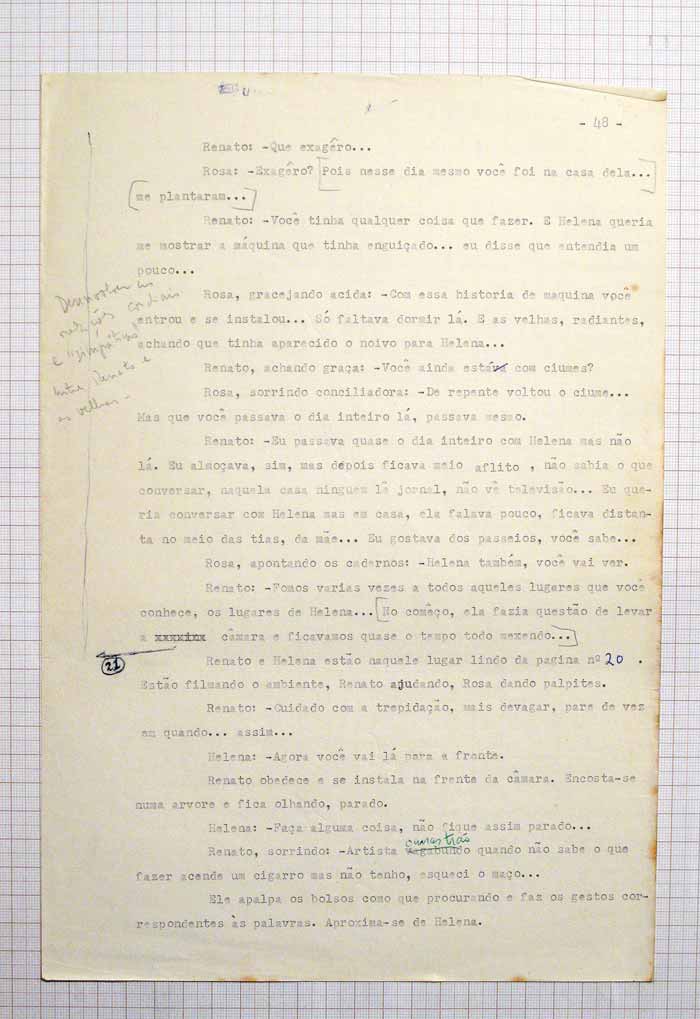 - 48 -
Renato: -Que exagêro...
Rosa: -Exagêro? [Pois nesse dia mesmo você foi na casa dela...]
[me plantaram...]
Renato: -Você tinha qualquer coisa que fazer. E Helena queria
me mostrar a máquina que tinha enguiçado... eu disse que entendia um
pouco...
Rosa, gracejando acida: -Com essa historia de maquina você
entrou e se instalou... Só faltava dormir lá. E as velhas, radiantes,
achando que tinha aparecido o noivo para Helena...
Renato, achando graça: -Você ainda estáva com ciumes?
Rosa, sorrindo conciliadora: -De repente voltou o ciume...
Mas que você passava o dia inteiro lá, passava mesmo.
Renato: -Eu passava quase o dia inteiro com Helena mas não
lá. Eu almoçava, sim, mas depois ficava meio aflito , não sabia o que
conversar, naquela casa ninguem lê jornal, não vê televisão... Eu que-
ria conversar com Helena mas em casa, ela falava pouco, ficava distan-
ta no meio das tias, da mãe... Eu gostava dos passeios, você sabe...
Rosa, apontando os cadernos: -Helena também, você vai ver.
Renato: -Fomos varias vezes a todos aqueles lugares que você
conhece, os lugares de Helena... [No comêço, ela fazia questão de levar
a xxxxixx câmara e ficavamos quase o tempo todo mexendo...]
Renato e Helena estão naquele lugar lindo da pagina nº 20 .
Estão filmando o ambiente, Renato ajudando, Rosa dando palpites.
Renato: -Cuidado com a trepidação, mais devagar, pare de vez
em quando... assim...
Helena: -Agora você vai lá para a frente.
Renato obedece e se instala na frente da câmara. Encosta-se
numa arvore e fica olhando, parado.
Helena: -Faça alguma coisa, não fique assim parado...
canastrão
Renato, sorrindo: -Artista vagabundo quando não sabe o que
fazer acende um cigarro mas não tenho, esqueci o maço...
Ele apalpa os bolsos como que procurando e faz os gestos cor-
respondentes às palavras. Aproxima-se de Helena.
relações cordiais
e "simpáticas"
entre Renato e
as velhas -
21